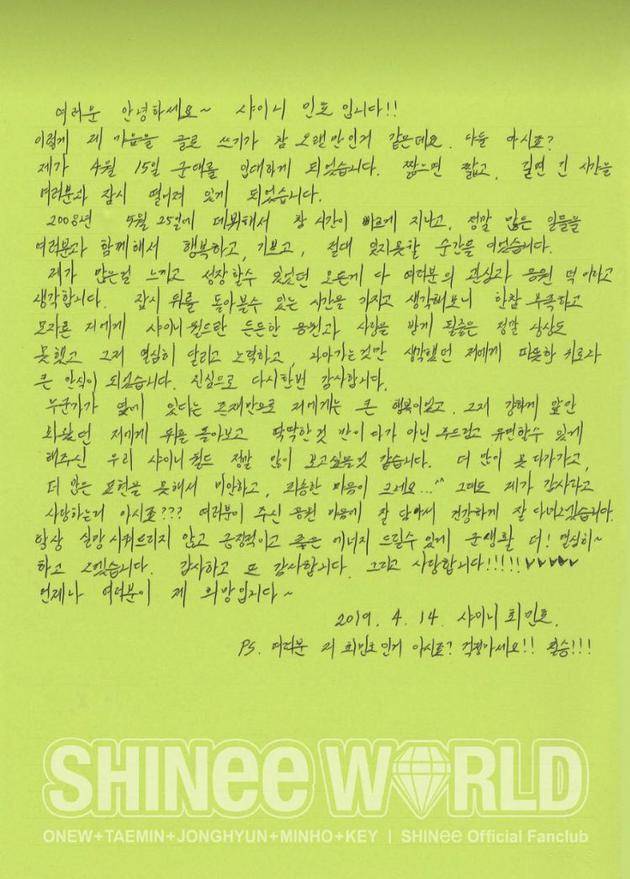 여러분 안녕하세요~ 샤이니 민호 입니다!!
이렇게 제 마음을 글로 쓰기가 참 오랜만인거 같은데요. 다들 아시죠?
제가 4월 15일 군대를 입대하게 되었습니다. 짧으면 짧고, 길면 긴 시간을
여러분과 잠시 떨어져 있게 되었습니다.
2008년 5월 25일에 데뷔해서 참 시간이 빠르게 지나고, 정말 많은 일들을
여러분과 함께해서 행복하고, 기쁘고, 절대 잊지못할 순간들 이었습니다.
제가 많은걸 느끼고 성장할수 있었던 모든게 다 여러분의 관심과 응원 덕이라고
생각합니다. 잠시 뒤를 돌아볼수 있는 시간을 가지고 생각해보니 한참 부족하고
모자른 저에게 샤이니 월드란 든든한 응원과 사랑을 받게 될줄은 정말 상상도
못했고 그저 열심히 달리고 노력하고, 나아가는것만 생각했던 저에게 따뜻한 치료와
큰 안식이 되었습니다. 진심으로 다시한번 감사합니다.
누군가가 옆에 있다는 존재만으로 저에게는 큰 행복이었고. 그저 강하게 앞만
봐왔던 저에게 뒤를 돌아보고 딱딱한것 만이 다가 아닌 부드럽고 유연할수 있게
해주신 우리 샤이니 월드 정말 많이 보고싶을것 같습니다. 더 많이 못 다가가고,
더 많은 표현을 못해서 미안하고, 죄송한 마음이 크네요...^^ 그래도 제가 감사하고
사랑하는거 아시죠??? 여러분이 주신 응원 마음에 잘 담아서 건강하게 잘 다녀오겠습니다.
항상 실망시켜드리지 않고 긍정적이고 좋은 에너지 드릴수 있게 군생활 더! 열심히~
하고 오겠습니다. 감사하고 또 감사합니다. 그리고 사랑합니다!!!!!!♥♥♥♥♥
언제나 여러분이 제 희망입니다~
2019. 4. 14. 샤이니 최민호.
PS. 여러분 저 최민호 인거 아시죠? 걱정마세요!! 필승!!!
SHINee WORLD
ONEW+TAEMIN+JONGHYUN+MINHO+KEY | SHINee Official Fanclub